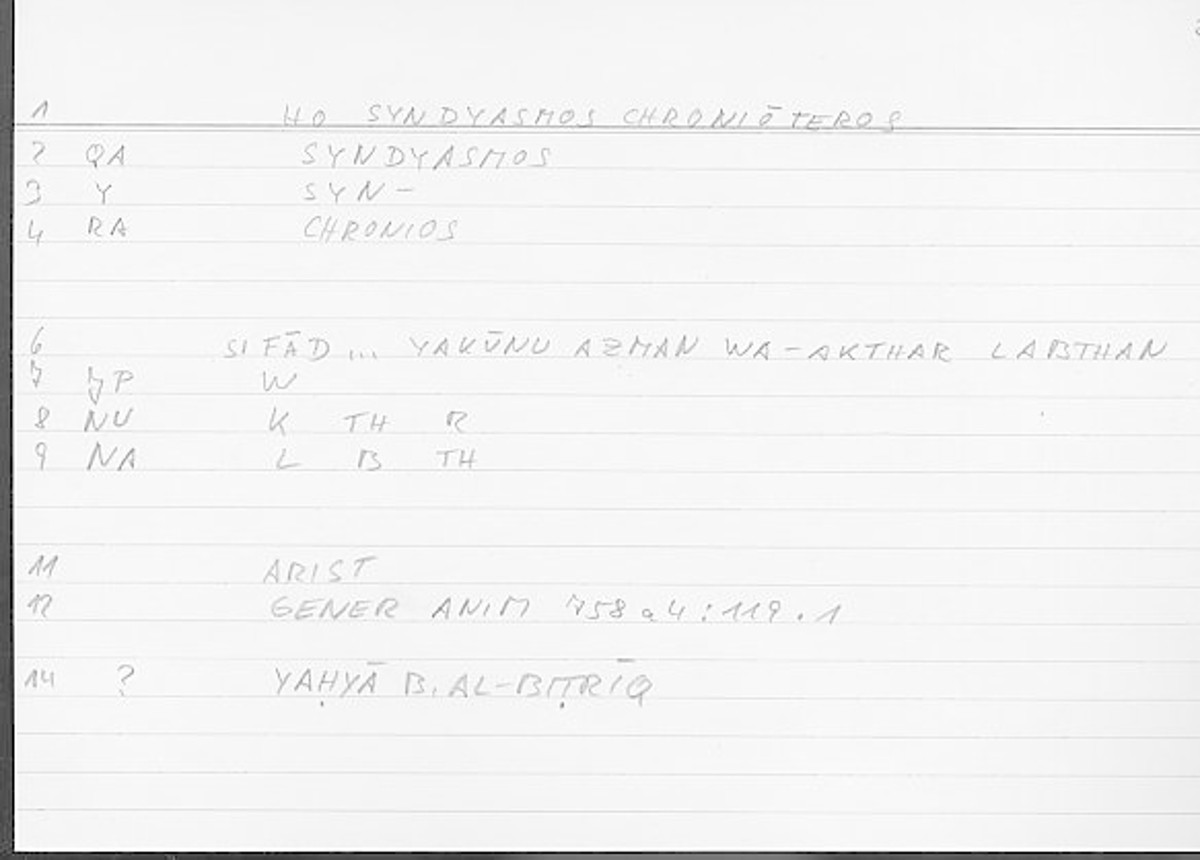 1 HO SYNDYASMOS CHRONIŌTEROS
2 QA SYNDYASMOS
3 Y SYN-
4 RA CHRONIOS
6 SIFĀD ... YAKŪNU AZMAN WA-AKTHAR LABTHAN
7 JP W
8 NU K TH R
9 NA L B TH
11 ARIST
12 GENER ANIM 758 a 4 : 119 . 1
14 ? YAḤYĀ B. AL-BIṬRĪQ